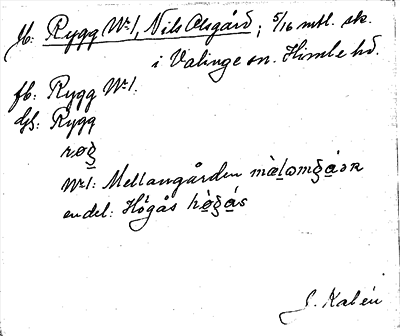 Jb: Rygg Nr 1, Nils Olsgård; 5/16 mtl. sk.
i Valinge sn. Himle hd.
fb: Rygg Nr 1.
Gs: Rygg
røg
Nr 1: Mellangården mèlomgá
en del: Högås hògás
S. Kalén